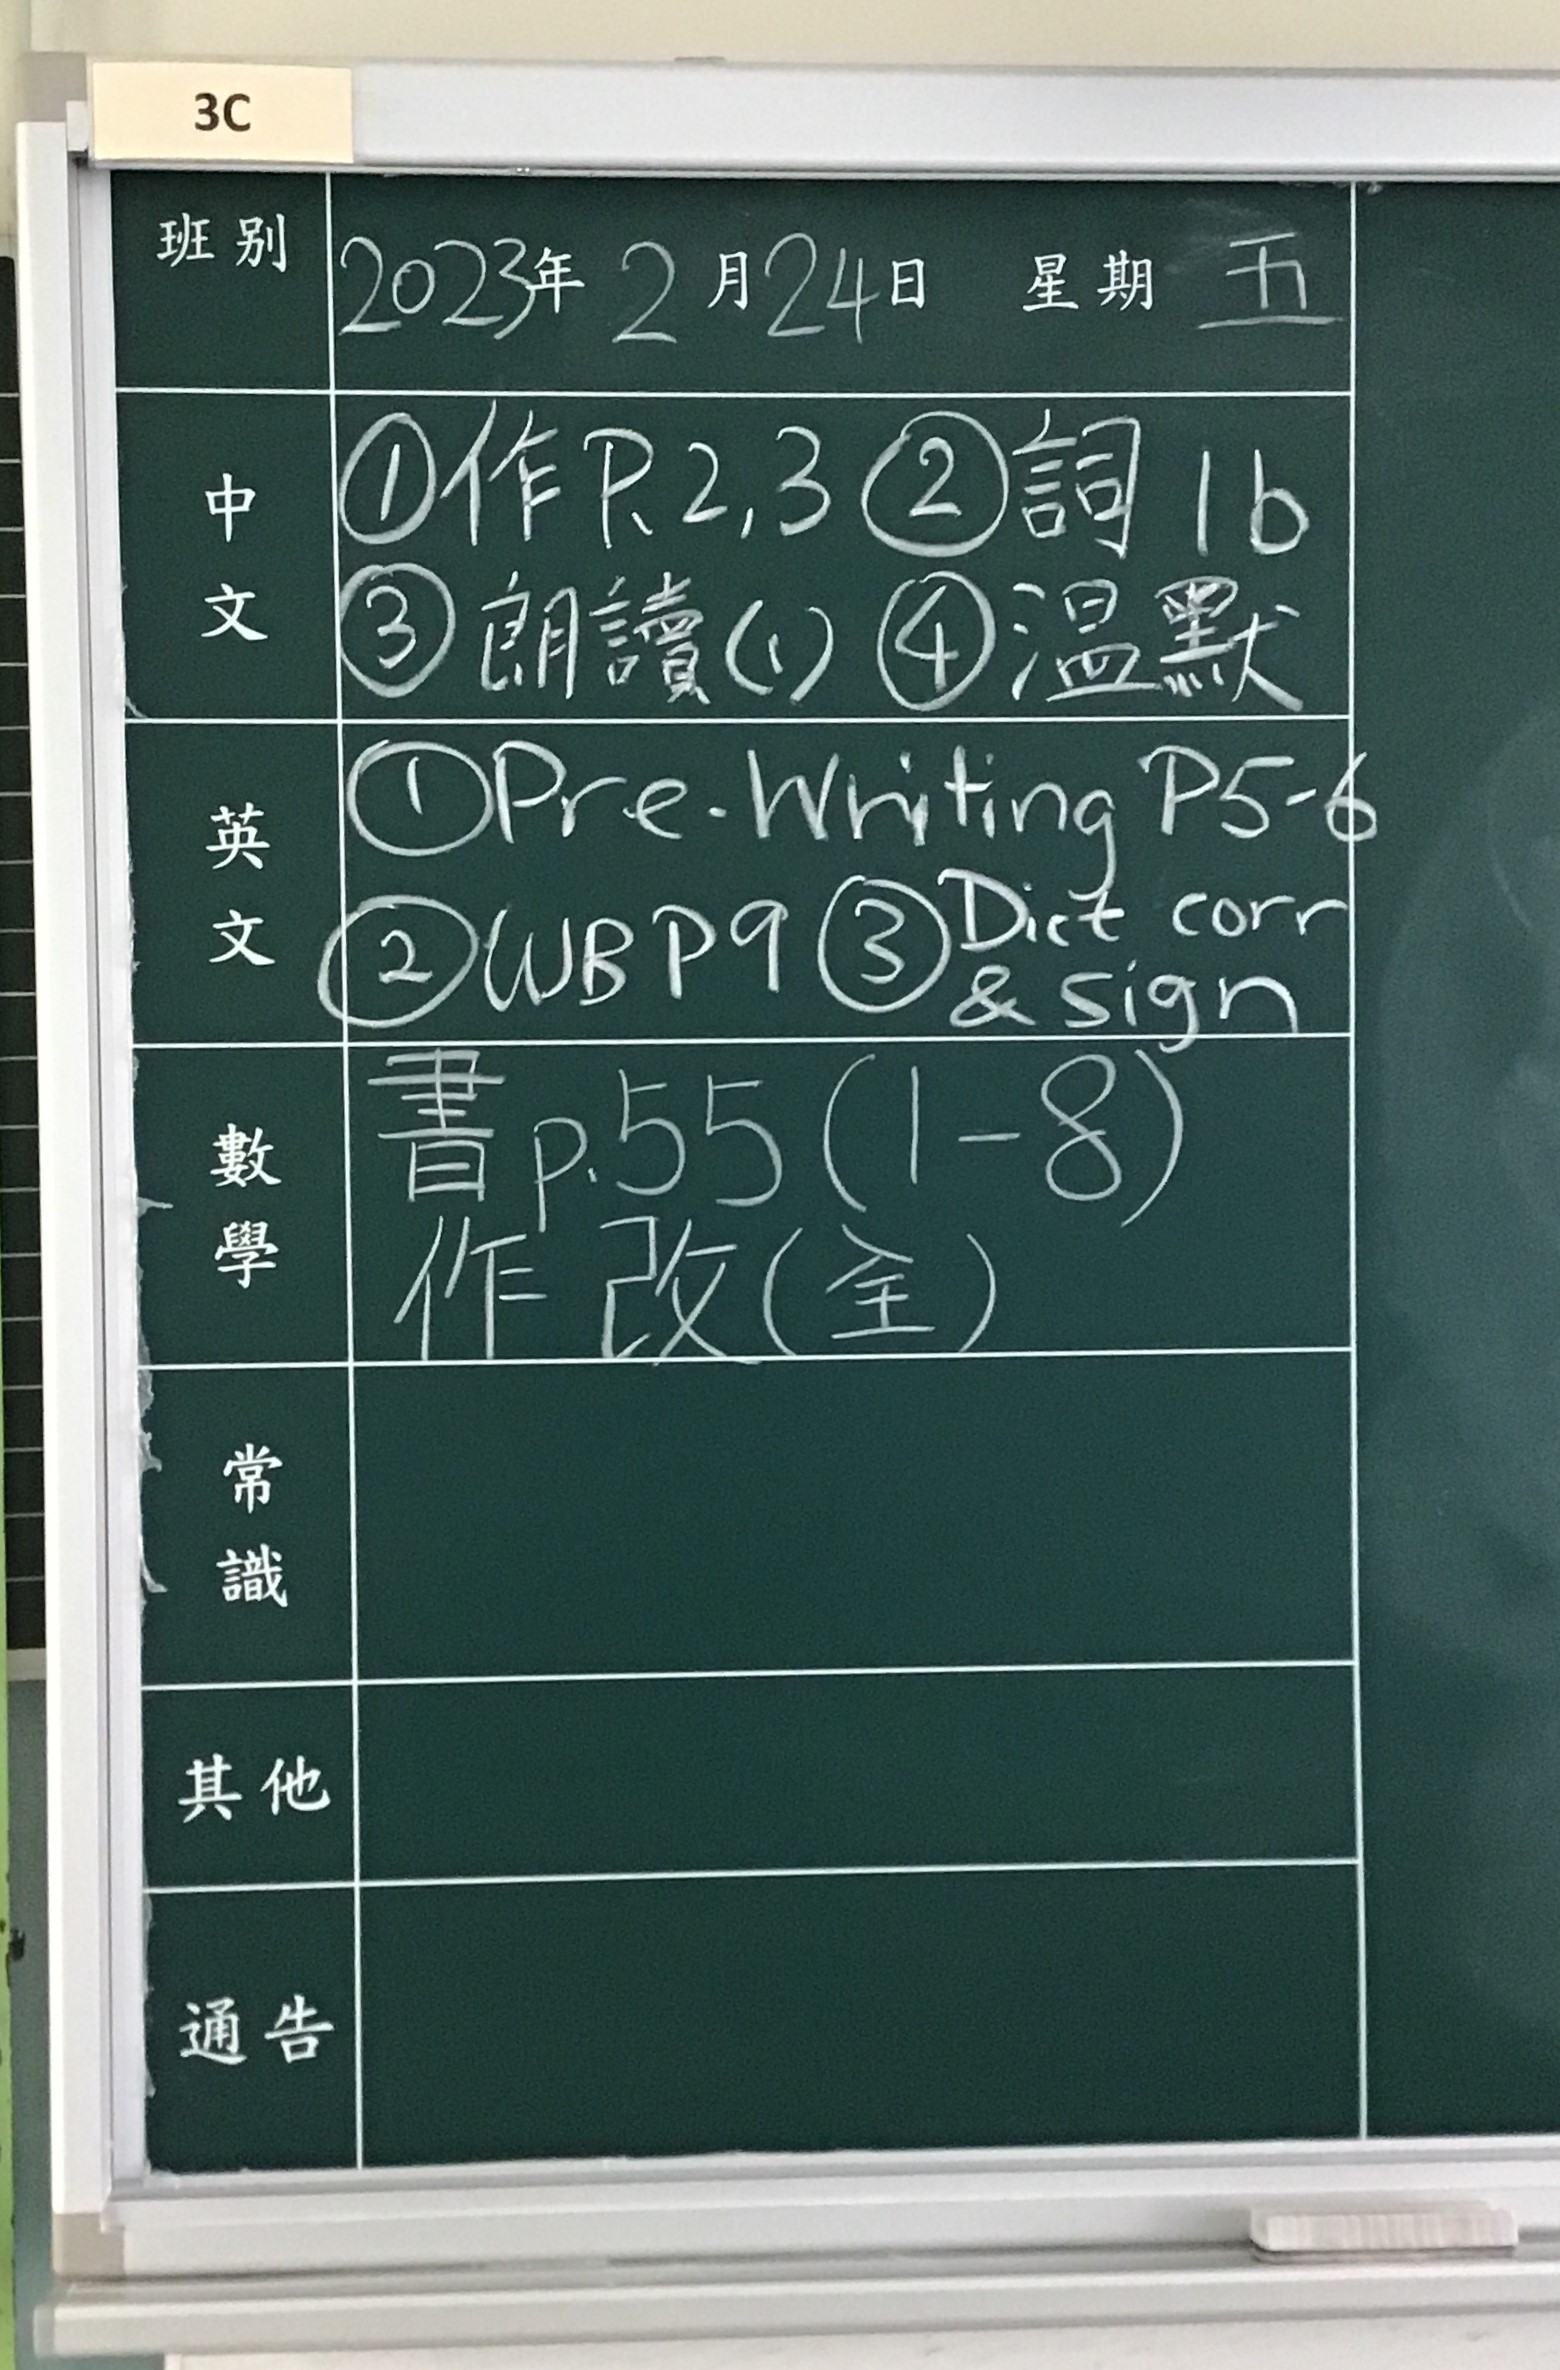 3C
班別 2023年 2月24日 星期 五
中文 ①作 P.2,3 ②詞 1b
③朗讀(1) ④温默
英文 ①Pre-Writing P5-6
②WB P9 ③Dict corr
& sign
數學 書p.55(1-8)
作 改(全)
常識
其他
通告